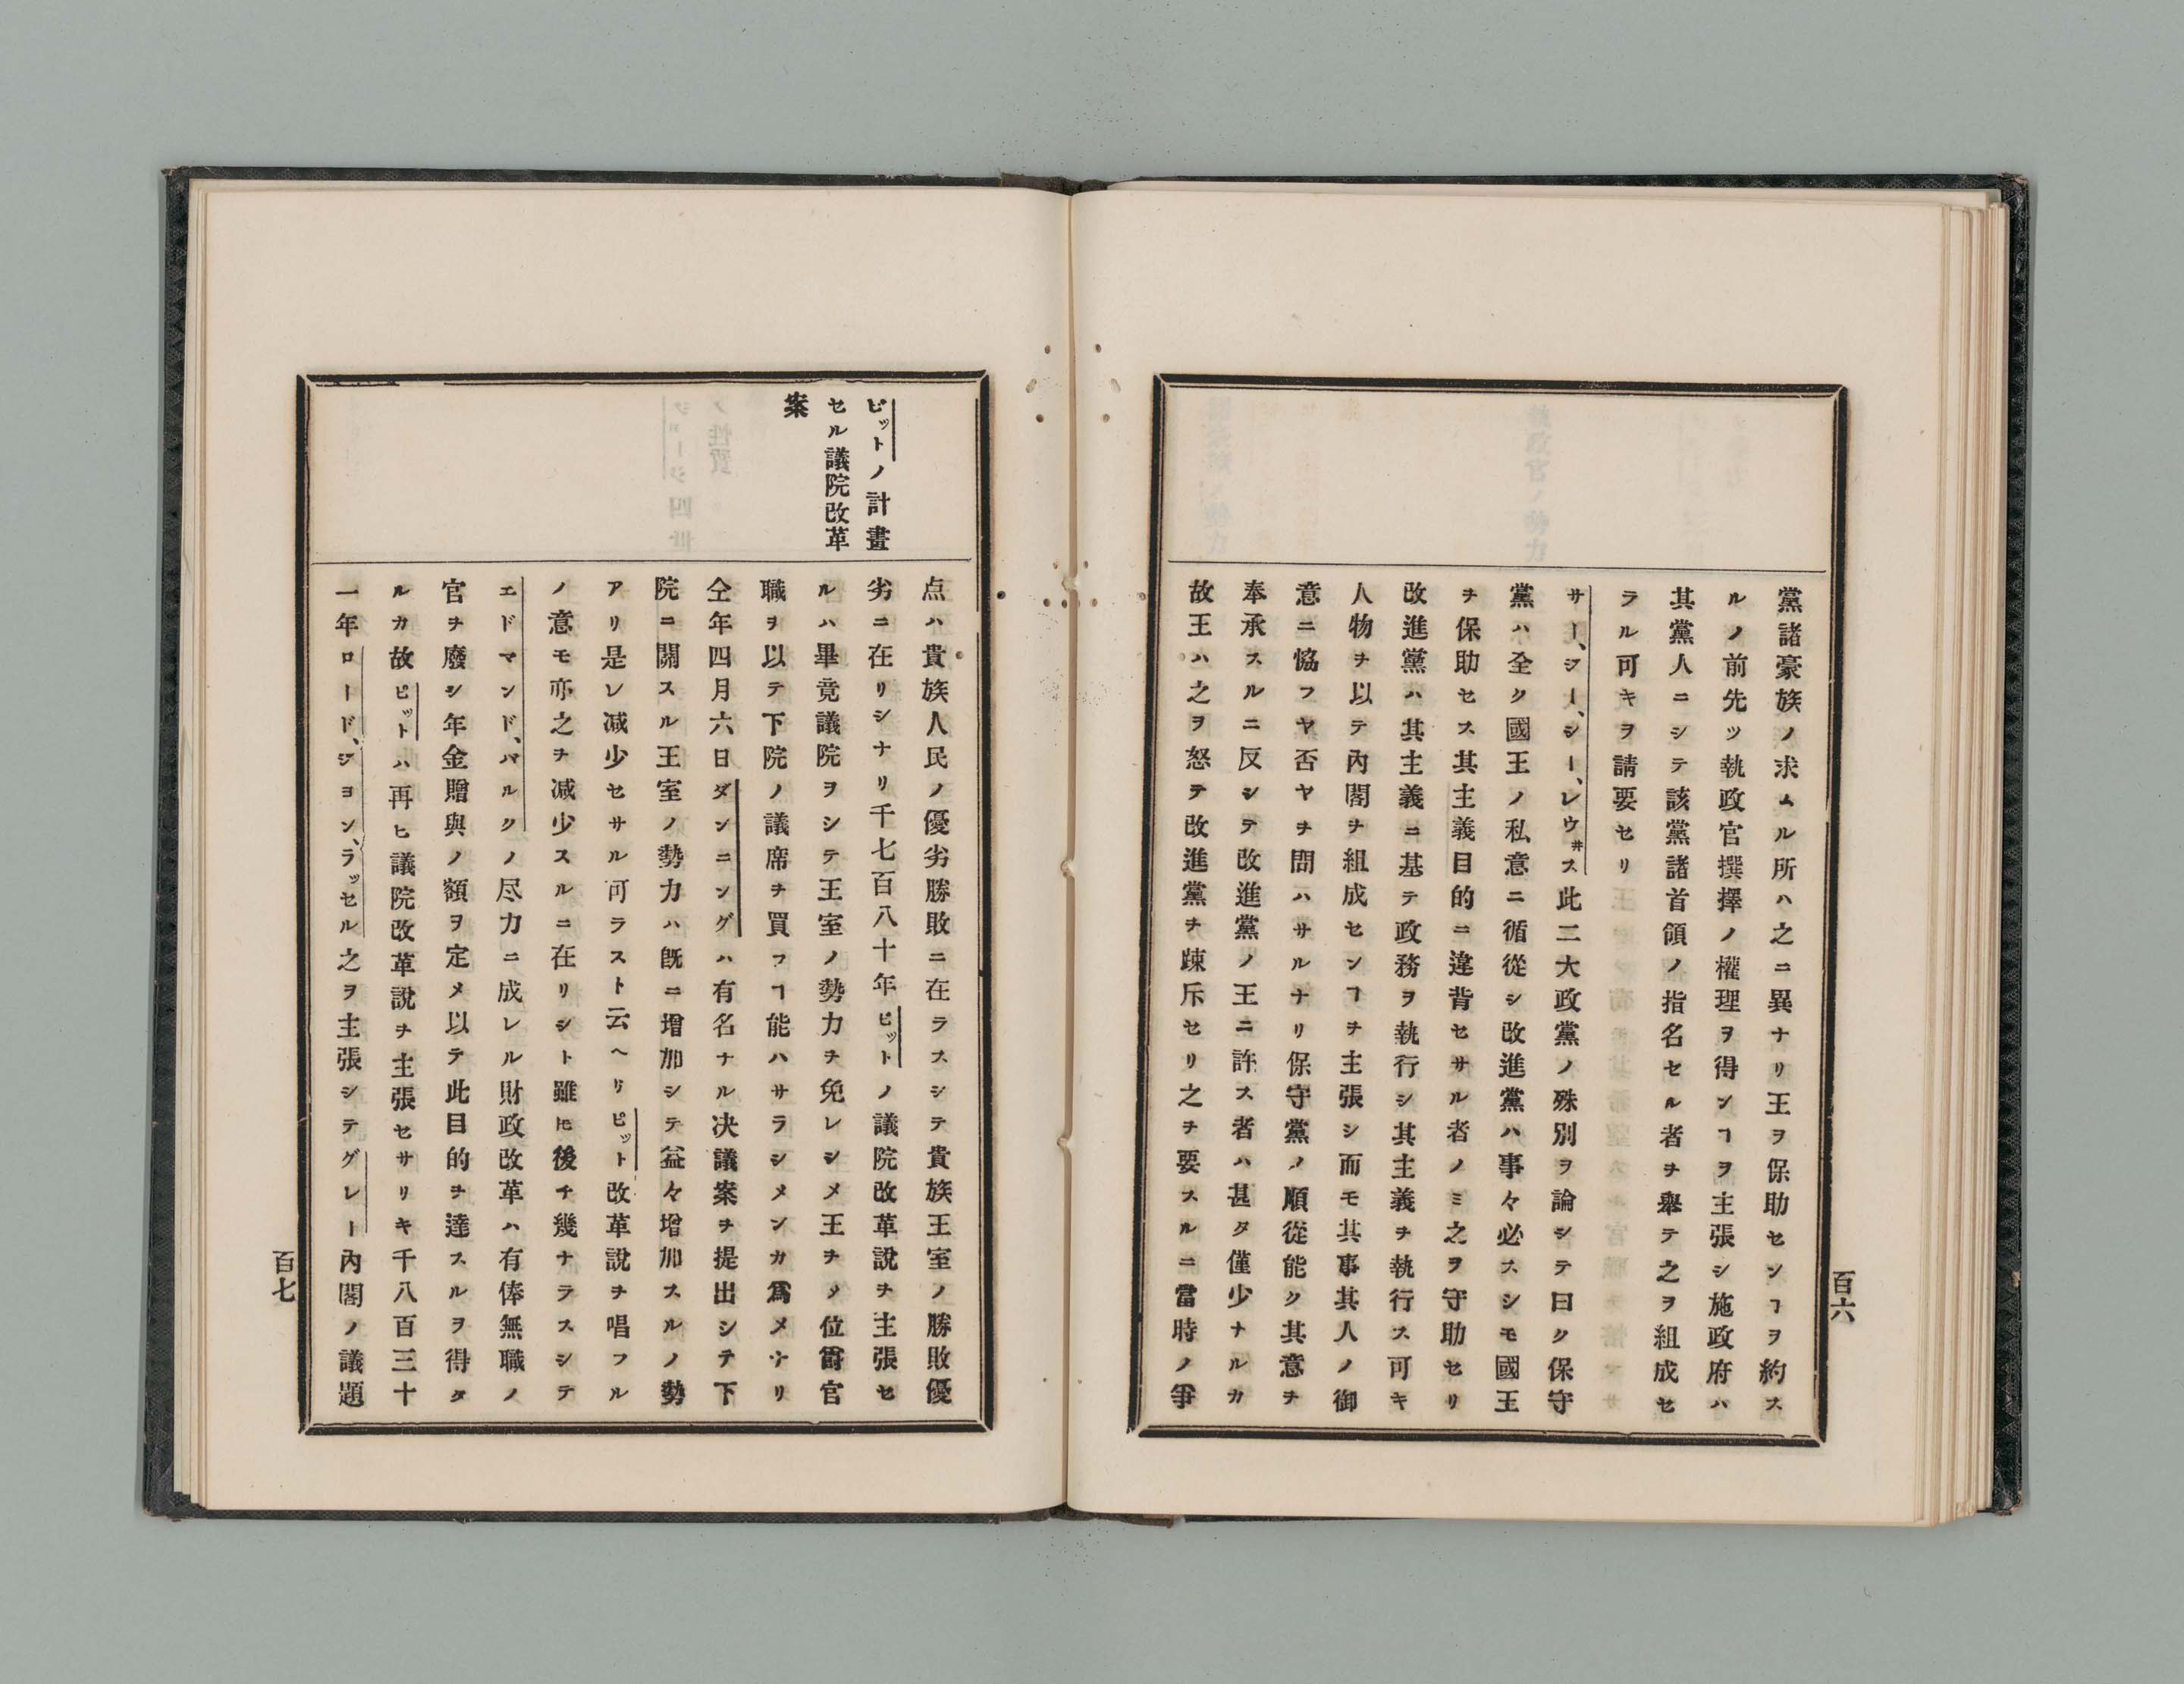 黨諸豪族ノ求ムル所ハ之ニ異ナリ王ヲ保助センヿヲ約ス
ルノ前先ツ執政官撰擇ノ權理ヲ得ンヿヲ主張シ施政府ハ
其黨人ニシテ該黨諸首領ノ指名セル者ヲ舉テ之ヲ組成セ
ラル可キヲ請要セリ
サー、ジー、シー、レウ井ス此二大政黨ノ殊別ヲ論シテ曰ク保守
黨ハ全ク國王ノ私意ニ循從シ改進黨ハ事々必スシモ國王
ヲ保助セス其主義目的ニ違背セサル者ノミ之ヲ守助セリ
改進黨ハ其主義ニ基テ政務ヲ執行シ其主義ヲ執行ス可キ
人物ヲ以テ內閣ヲ組成センヿヲ主張シ而モ其事其人ノ御
意ニ恊フヤ否ヤヲ問ハサルナリ保守黨ノ順從能ク其意ヲ
奉承スルニ反シテ改進黨ノ王ニ許ス者ハ甚タ僅少ナルカ
故王ハ之ヲ怒テ改進黨ヲ疎斥セリ之ヲ要スルニ當時ノ爭
百六
ピットノ計畫
セル議院改革
案
点ハ貴族人民ノ優劣勝敗ニ在ラスシテ貴族王室ノ勝敗優
劣ニ在リシナリ千七百八十年ピットノ議院改革說ヲ主張セ
ルハ畢竟議院ヲシテ王室ノ勢力ヲ免レシメ王ヲメ位爵官
職ヲ以テ下院ノ議席ヲ買フヿ能ハサラシメンカ爲メナリ
仝年四月六日ダンニングハ有名ナル决議案ヲ提出シテ下
院ニ關スル王室ノ勢力ハ既ニ增加シテ益々增加スルノ勢
アリ是レ减少セサル可ラスト云ヘリピット改革說ヲ唱フル
ノ意モ亦之ヲ减少スルニ在リシト雖𪜈後チ幾ナラスシテ
エドマンド、バルクノ尽力ニ成レル財政改革ハ有俸無職ノ
官ヲ廢シ年金贈與ノ額ヲ定メ以テ此目的ヲ達スルヲ得タ
ルカ故ピットハ再ヒ議院改革說ヲ主張セサリキ千八百三十
一年ロードジヨン、ラッセル之ヲ主張シテグレー內閣ノ議題
百七